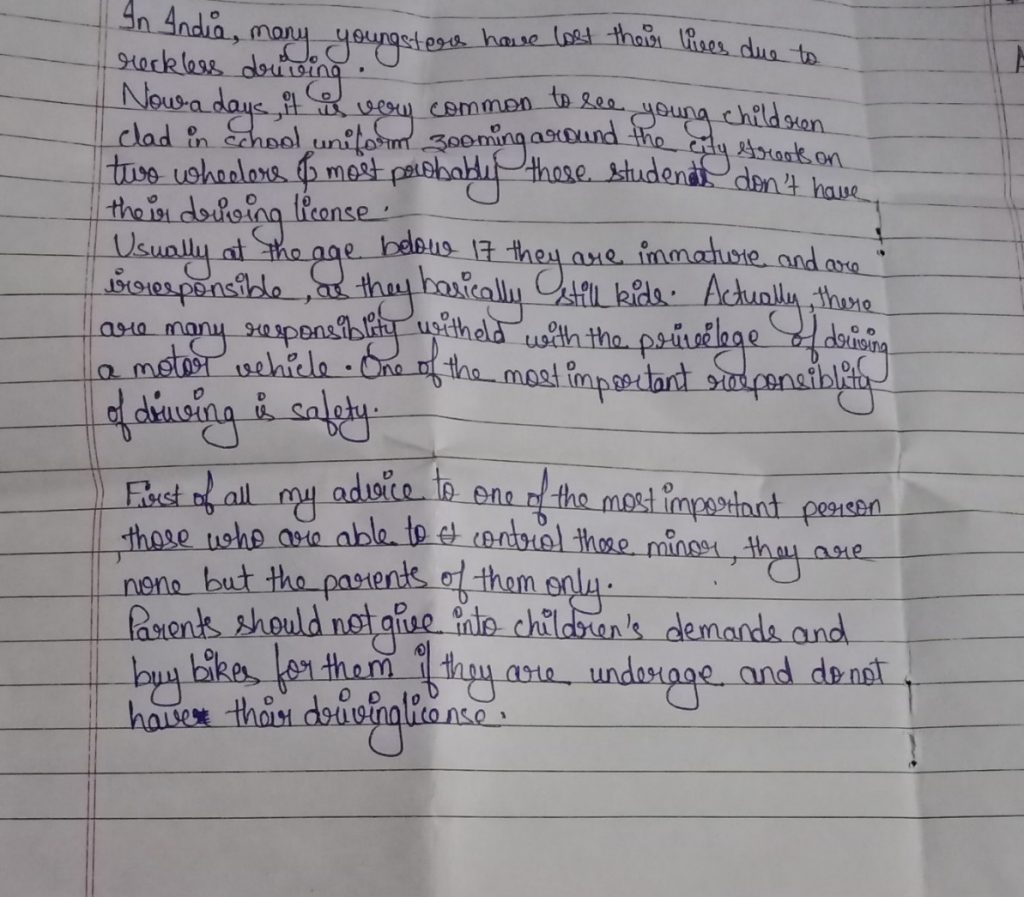 In India, many youngsters have lost their lives due to
reckless driving.
Nowadays, it is very common to see young children
clad in school uniform zooming around the city streets on
two wheelers & most probably these students don't have
their driving license.
Usually at the age below 17 they are immature and are
irresponsible, as they basically still kids. Actually, there
are many responsiblity witheld with the privelege of driving
a motor vehicle. One of the most important responsiblity
of driving is safety.
First of all my advice to one of the most important person
, those who are able to control those minor, they are
none but the parents of them only.
Parents should not give into children's demands and
buy bikes for them if they are underage and do not
have their driving license.